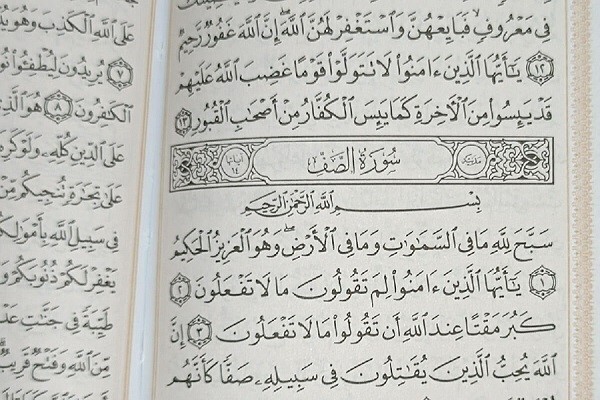 فِى مَعْرُوفٍ فَبَايِعْهُنَّ وَاسْتَغْفِرْ لَهُنَّ اللَّهَ إِنَّ اللَّهَ غَفُورٌ رَّحِيمٌ
١٢ يَٰٓأَيُّهَا الَّذِينَ ءَامَنُوا۟ لَا تَتَوَلَّوْا۟ قَوْمًا غَضِبَ اللَّهُ عَلَيْهِمْ
قَدْ يَئِسُوا۟ مِنَ الْءَاخِرَةِ كَمَا يَئِسَ الْكُفَّارُ مِنْ أَصْحَٰبِ الْقُبُورِ ١٣
مدنية سُورَةُ الصَّفِّ آياتها ١٤
بِسْمِ اللَّهِ الرَّحْمَٰنِ الرَّحِيمِ
سَبَّحَ لِلَّهِ مَا فِى السَّمَٰوَٰتِ وَمَا فِى الْأَرْضِ وَهُوَ الْعَزِيزُ الْحَكِيمُ
١ يَٰٓأَيُّهَا الَّذِينَ ءَامَنُوا۟ لِمَ تَقُولُونَ مَا لَا تَفْعَلُونَ ٢
كَبُرَ مَقْتًا عِندَ اللَّهِ أَن تَقُولُوا۟ مَا لَا تَفْعَلُونَ ٣ إِنَّ
اللَّهَ يُحِبُّ الَّذِينَ يُقَٰتِلُونَ فِى سَبِيلِهِۦ صَفًّا كَأَنَّهُم
عَلَى اللَّهِ الْكَذِبَ وَهُوَ
٧ يُرِيدُونَ لِيُطْفِـُٔوا۟
الْكَٰفِرُونَ ٨ هُوَ الَّذِى
عَلَى الدِّينِ كُلِّهِۦ وَلَوْ كَرِهَ
عَلَىٰ تِجَٰرَةٍ تُنجِيكُم مِّنْ
فِى سَبِيلِ اللَّهِ بِأَمْوَٰلِكُمْ
يَغْفِرْ لَكُمْ ذُنُوبَكُمْ
طَيِّبَةً فِى جَنَّٰتِ عَدْنٍ
مِّنَ اللَّهِ وَفَتْحٌ قَرِيبٌ